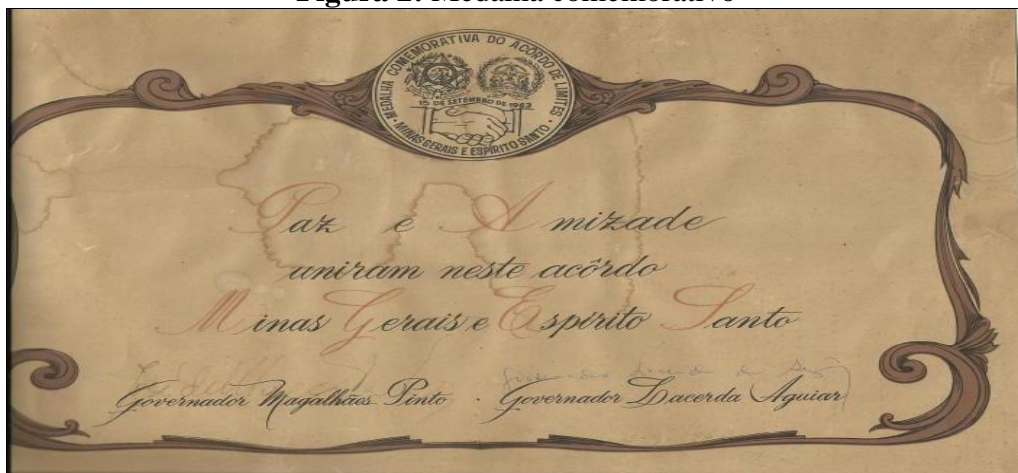 Figura 2: Medalha comemorativo
MEDALHA COMEMORATIVA DO ACÔRDO DE LIMITES
15 DE SETEMBRO DE 1963
MINAS GERAIS E ESPÍRITO SANTO
Paz e Amizade
uniram neste acôrdo
Minas Gerais e Espírito Santo
Governador Magalhães Pinto . Governador Lacerda Aguiar